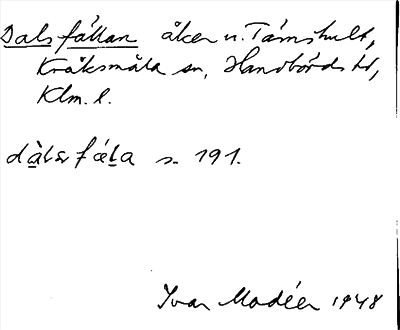 Dalsfällan åker u. Tämshult,
Kråksmåla sn, Handbörds hd,
Klm. l.
dàlsfæ̀la s. 191.
Ivar Modéer 1948